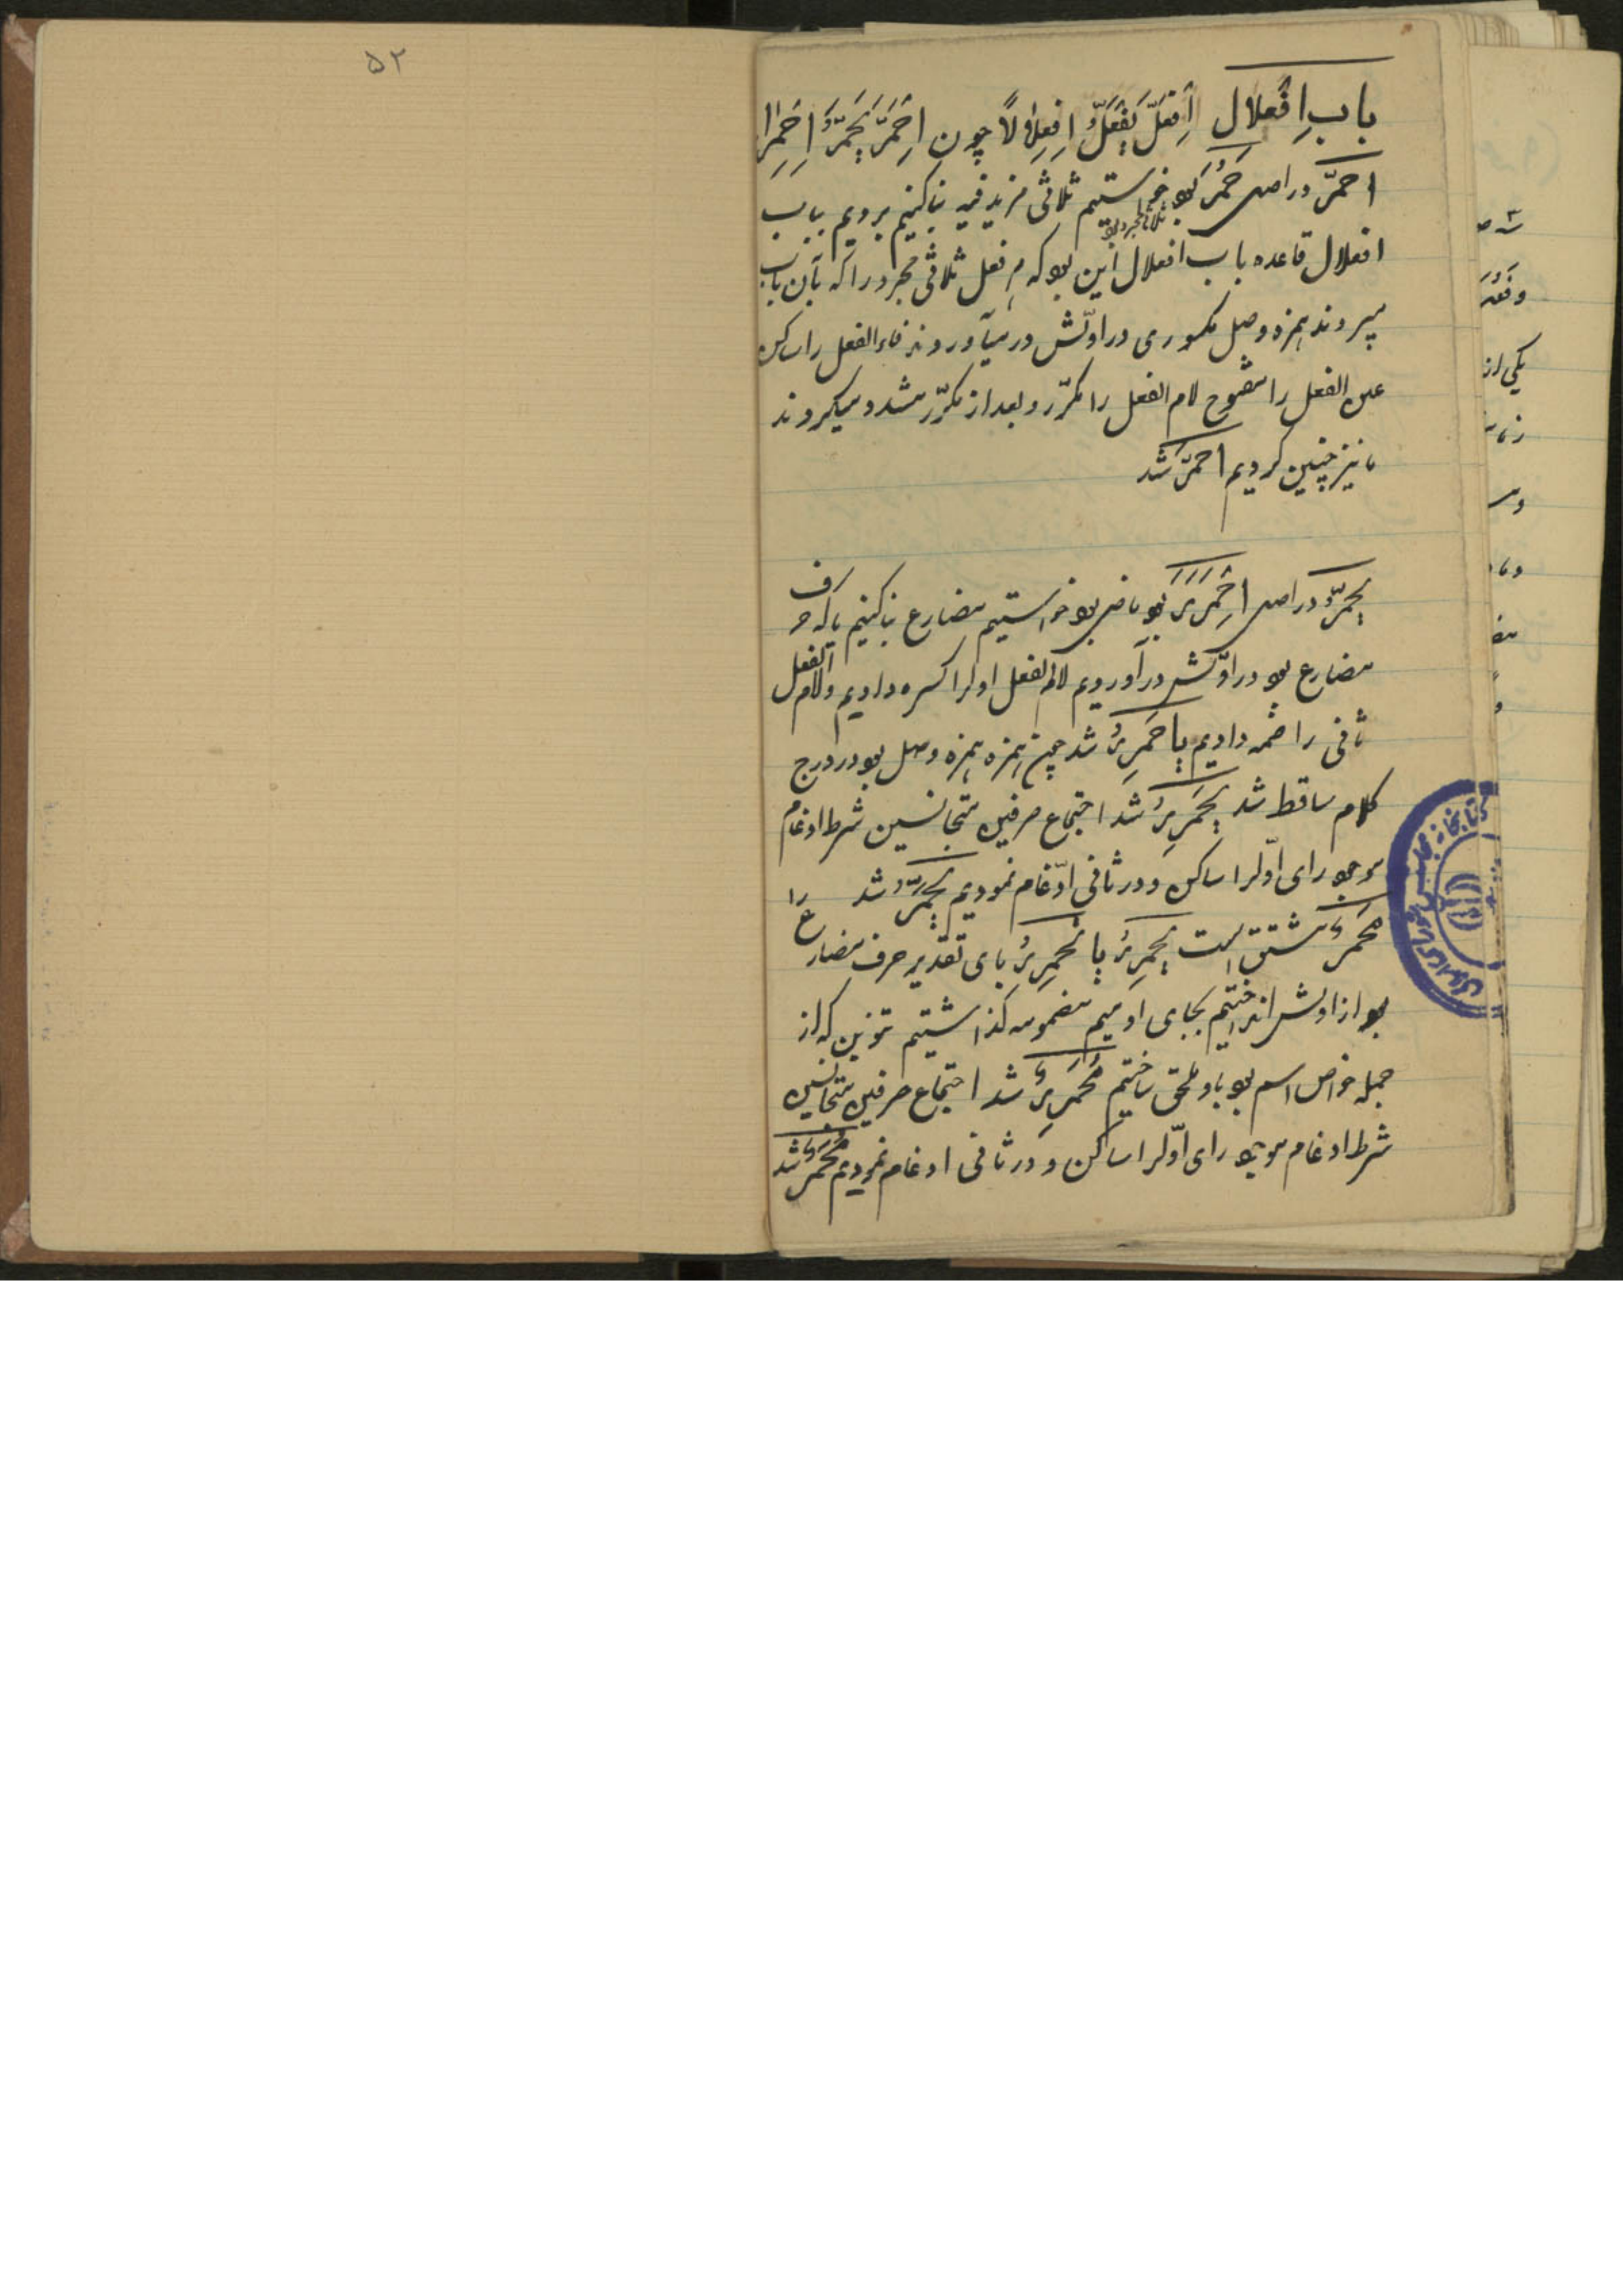 ۵۲
باب اِفْعلال اِفْعَلَّ یَفْعَلُّ اِفْعِلالًا چون اِحْمَرَّ یَحْمَرُّ اِحْمِرا
احمرّ در اصل حَمُرَ بود خواستیم ثلاثی مزید فیه بنا کنیم بردیم بباب
ثلاثی مجرد بود
افعلال قاعده باب افعلال این بود که هر فعل ثلاثی مجرد را که بآن باب
میبردند همزه وصل مکسوری در اوّلش درمیآوردند فاء الفعل را ساکن
عین الفعل را مفتوح لام الفعل را مکرّر و بعد از مکرّر مشدد میکردند
ما نیز چنین کردیم احمرّ شد
یحمرُّ در اصل اِحْمَرَرَ بود ماضی بود خواستیم مضارع بنا کنیم یا که حرف
مضارع بود در اوّلش درآوردیم لام الفعل اولرا کسره دادیم و لام الفعل
ثانی را ضمه دادیم یاحْمَرِرُ شد چون همزه همزه وصل بود در درج
کلام ساقط شد یَحْمَرِرُ شد اجتماع حرفین متجانسین شرط ادغام
موجود رای اوّلرا ساکن و در ثانی ادّغام نمودیم یحمرُّ شد
مُحْمَرٌّ مشتق است یحمررُ یا یحمررُ یای تقدیر حرف مضارع را
بود از اولش انداختیم بجای او میم مضمومه گذاشتیم تنوین که از
جمله خواص اسم بود باو ملحق ساختیم مُحْمَرِرٌ شد اجتماع حرفین متجانسین
شرط ادغام موجود رای اوّلرا ساکن و در ثانی ادغام نمودیم مُحْمَرٌّ شد
وفعد
یکی از
کتابخانه مجلس شورای ملی